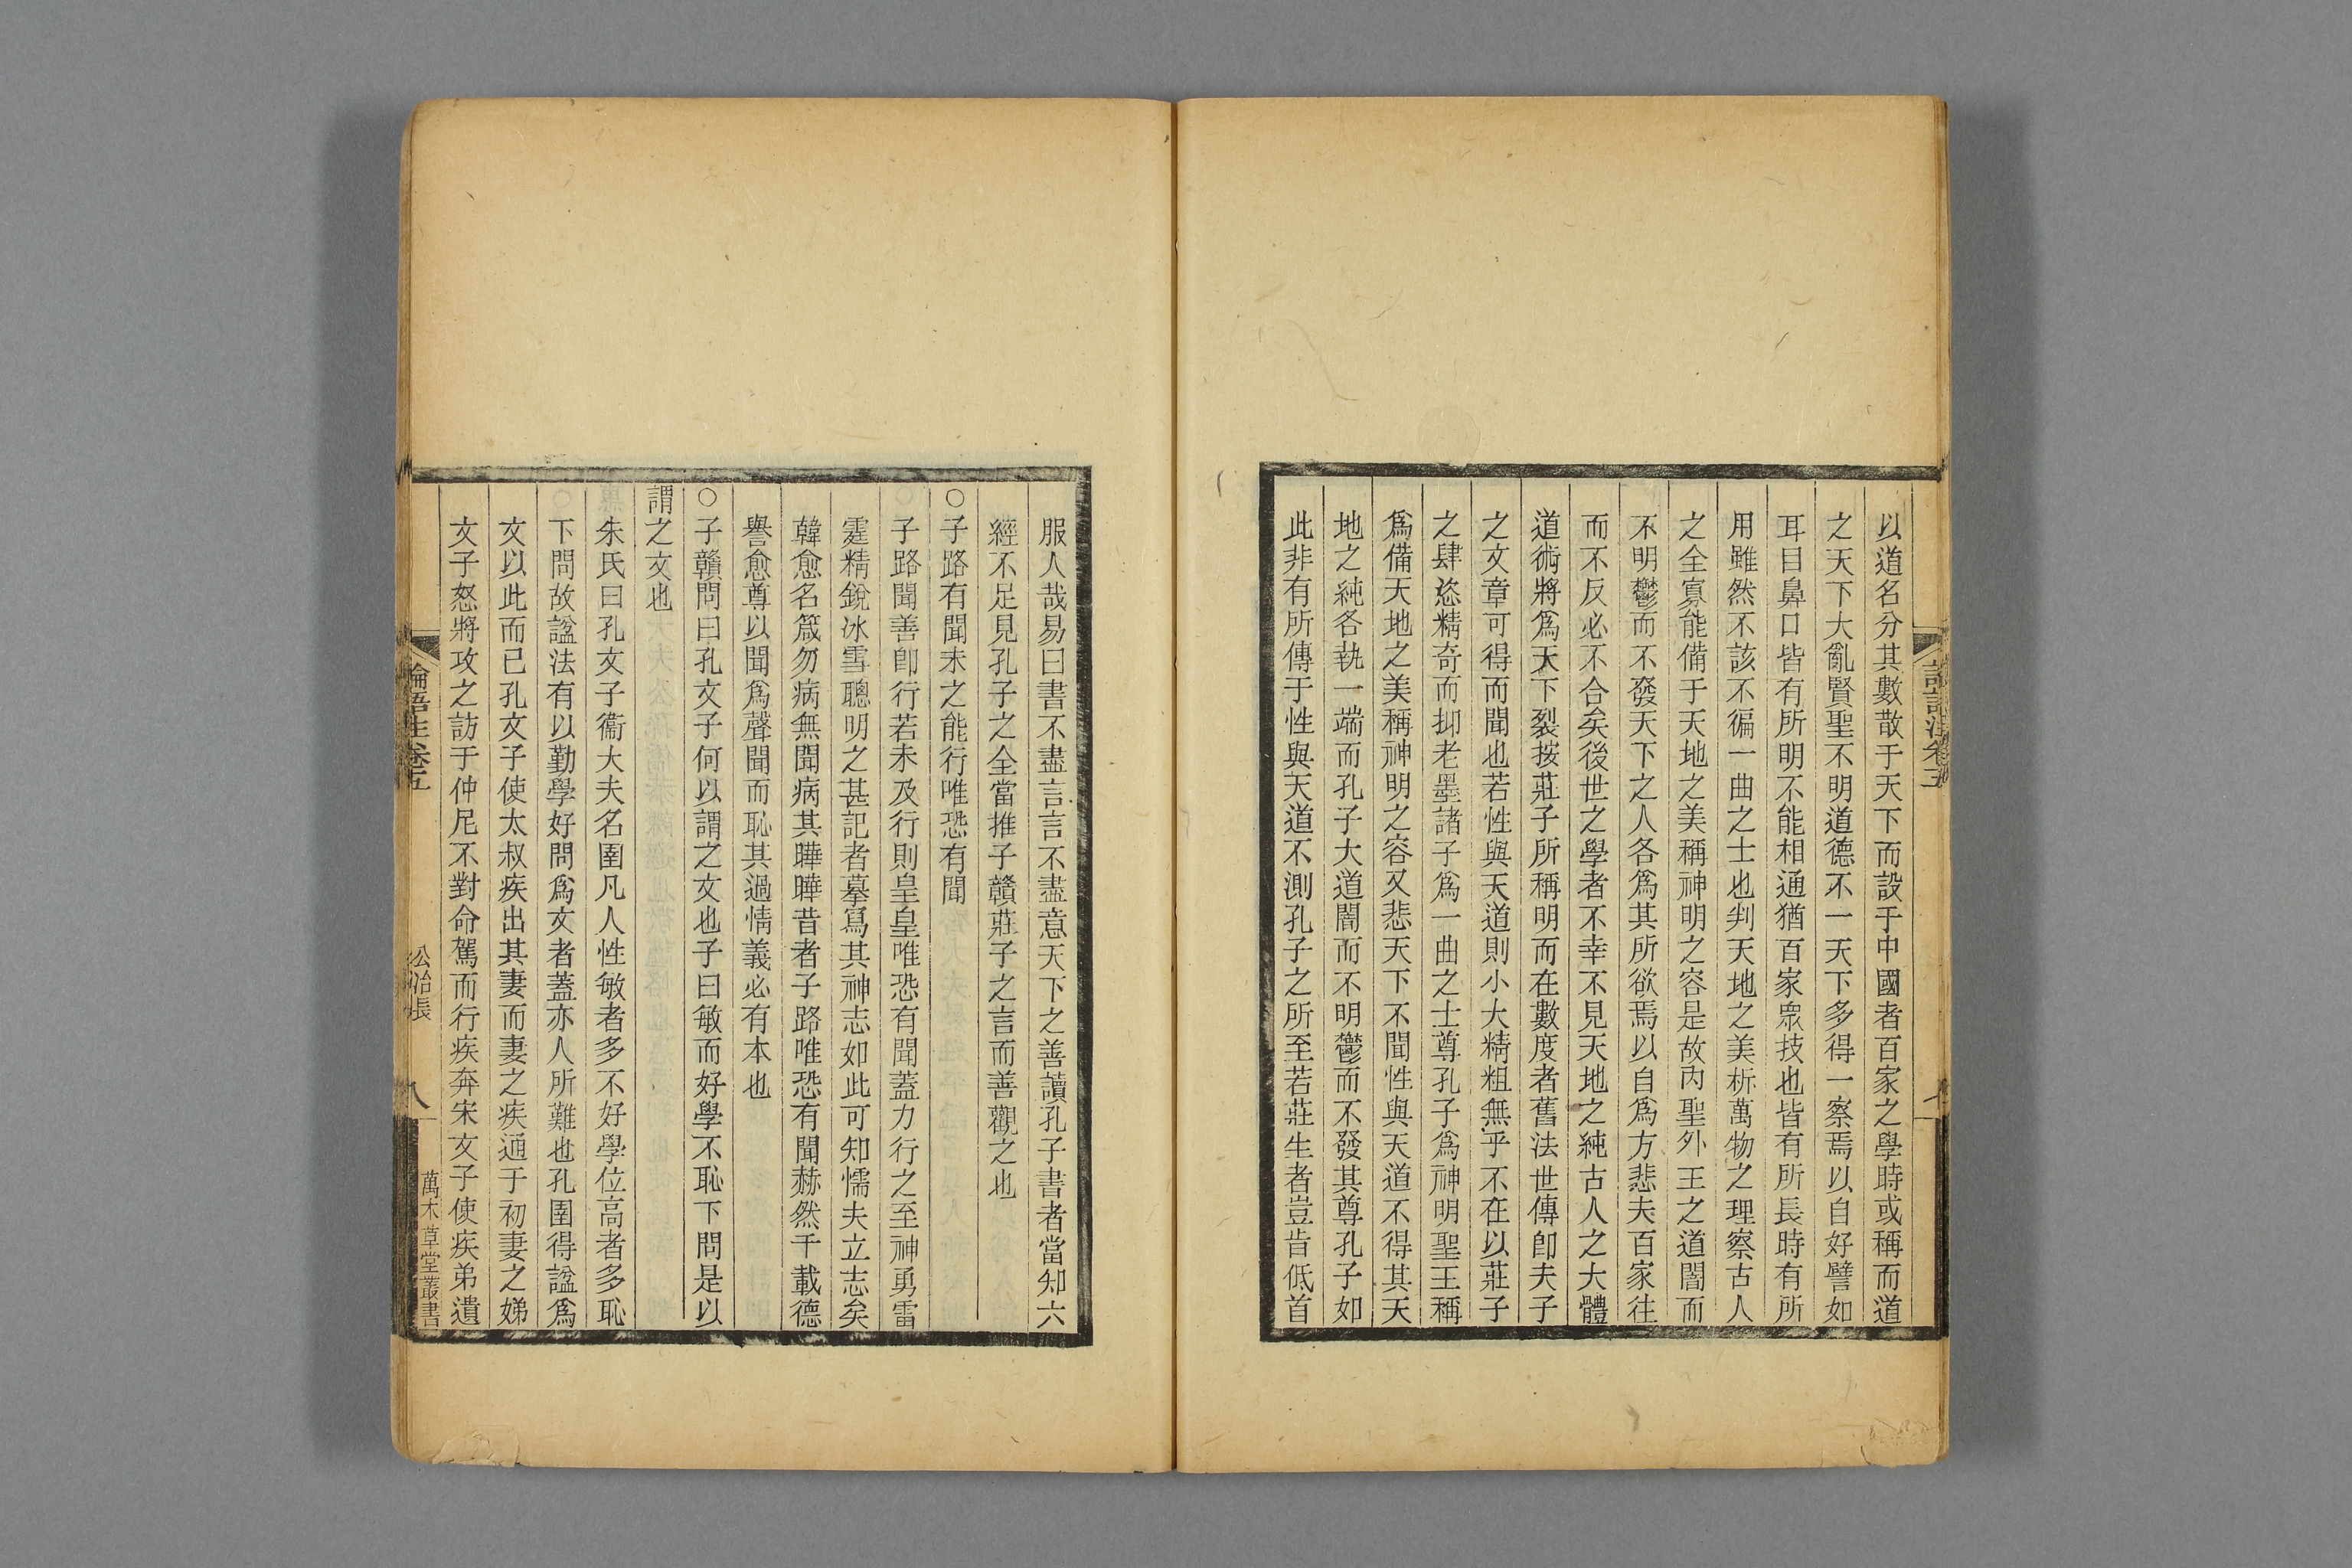 以道名分其數散于天下而設于中國者百家之學時或稱而道
之天下大亂賢聖不明道德不一天下多得一察焉以自好譬如
耳目鼻口皆有所明不能相通猶百家衆技也皆有所長時有所
用雖然不該不徧一曲之士也判天地之美析萬物之理察古人
之全寡能備于天地之美稱神明之容是故內聖外王之道闇而
不明鬱而不發天下之人各爲其所欲焉以自爲方悲夫百家往
而不反必不合矣後世之學者不幸不見天地之純古人之大體
道術將爲天下裂按莊子所稱明而在數度者舊法世傳卽夫子
之文章可得而聞也若性與天道則小大精粗無乎不在以莊子
之肆恣精奇而抑老墨諸子爲一曲之士尊孔子爲神明聖王稱
爲備天地之美稱神明之容又悲天下不聞性與天道不得其天
地之純各執一端而孔子大道闇而不明鬱而不發其尊孔子如
此非有所傳于性與天道不測孔子之所至若莊生者豈肯低首
服人哉易曰書不盡言言不盡意天下之善讀孔子書者當知六
經不足見孔子之全當推子贛莊子之言而善觀之也
○子路有聞未之能行唯恐有聞
子路聞善卽行若未及行則皇皇唯恐有聞蓋力行之至神勇雷
霆精銳冰雪聰明之甚記者摹寫其神志如此可知懦夫立志矣
韓愈名箴勿病無聞病其曄曄昔者子路唯恐有聞赫然千載德
譽愈尊以聞爲聲聞而恥其過情義必有本也
○子贛問曰孔文子何以謂之文也子曰敏而好學不恥下問是以
謂之文也
朱氏曰孔文子衞大夫名圉凡人性敏者多不好學位高者多恥
下問故諡法有以勤學好問爲文者蓋亦人所難也孔圉得諡爲
文以此而已孔文子使太叔疾出其妻而妻之疾通于初妻之娣
文子怒將攻之訪于仲尼不對命駕而行疾奔宋文子使疾弟遺
論語注卷五
公冶長
八
萬木草堂叢書